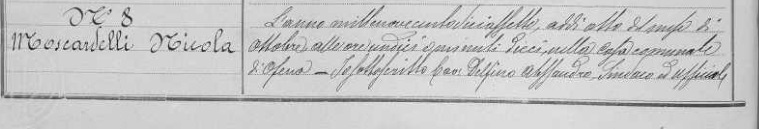 N° 8
Moscardelli Nicola
L'anno millenovecentodiciassette, addì otto del mese di
Ottobre, alle ore undici e minuti dieci, nella Casa comunale
di Ofena — Io sottoscritto Cav. Delfino Alessandro, Sindaco ed Ufficiale